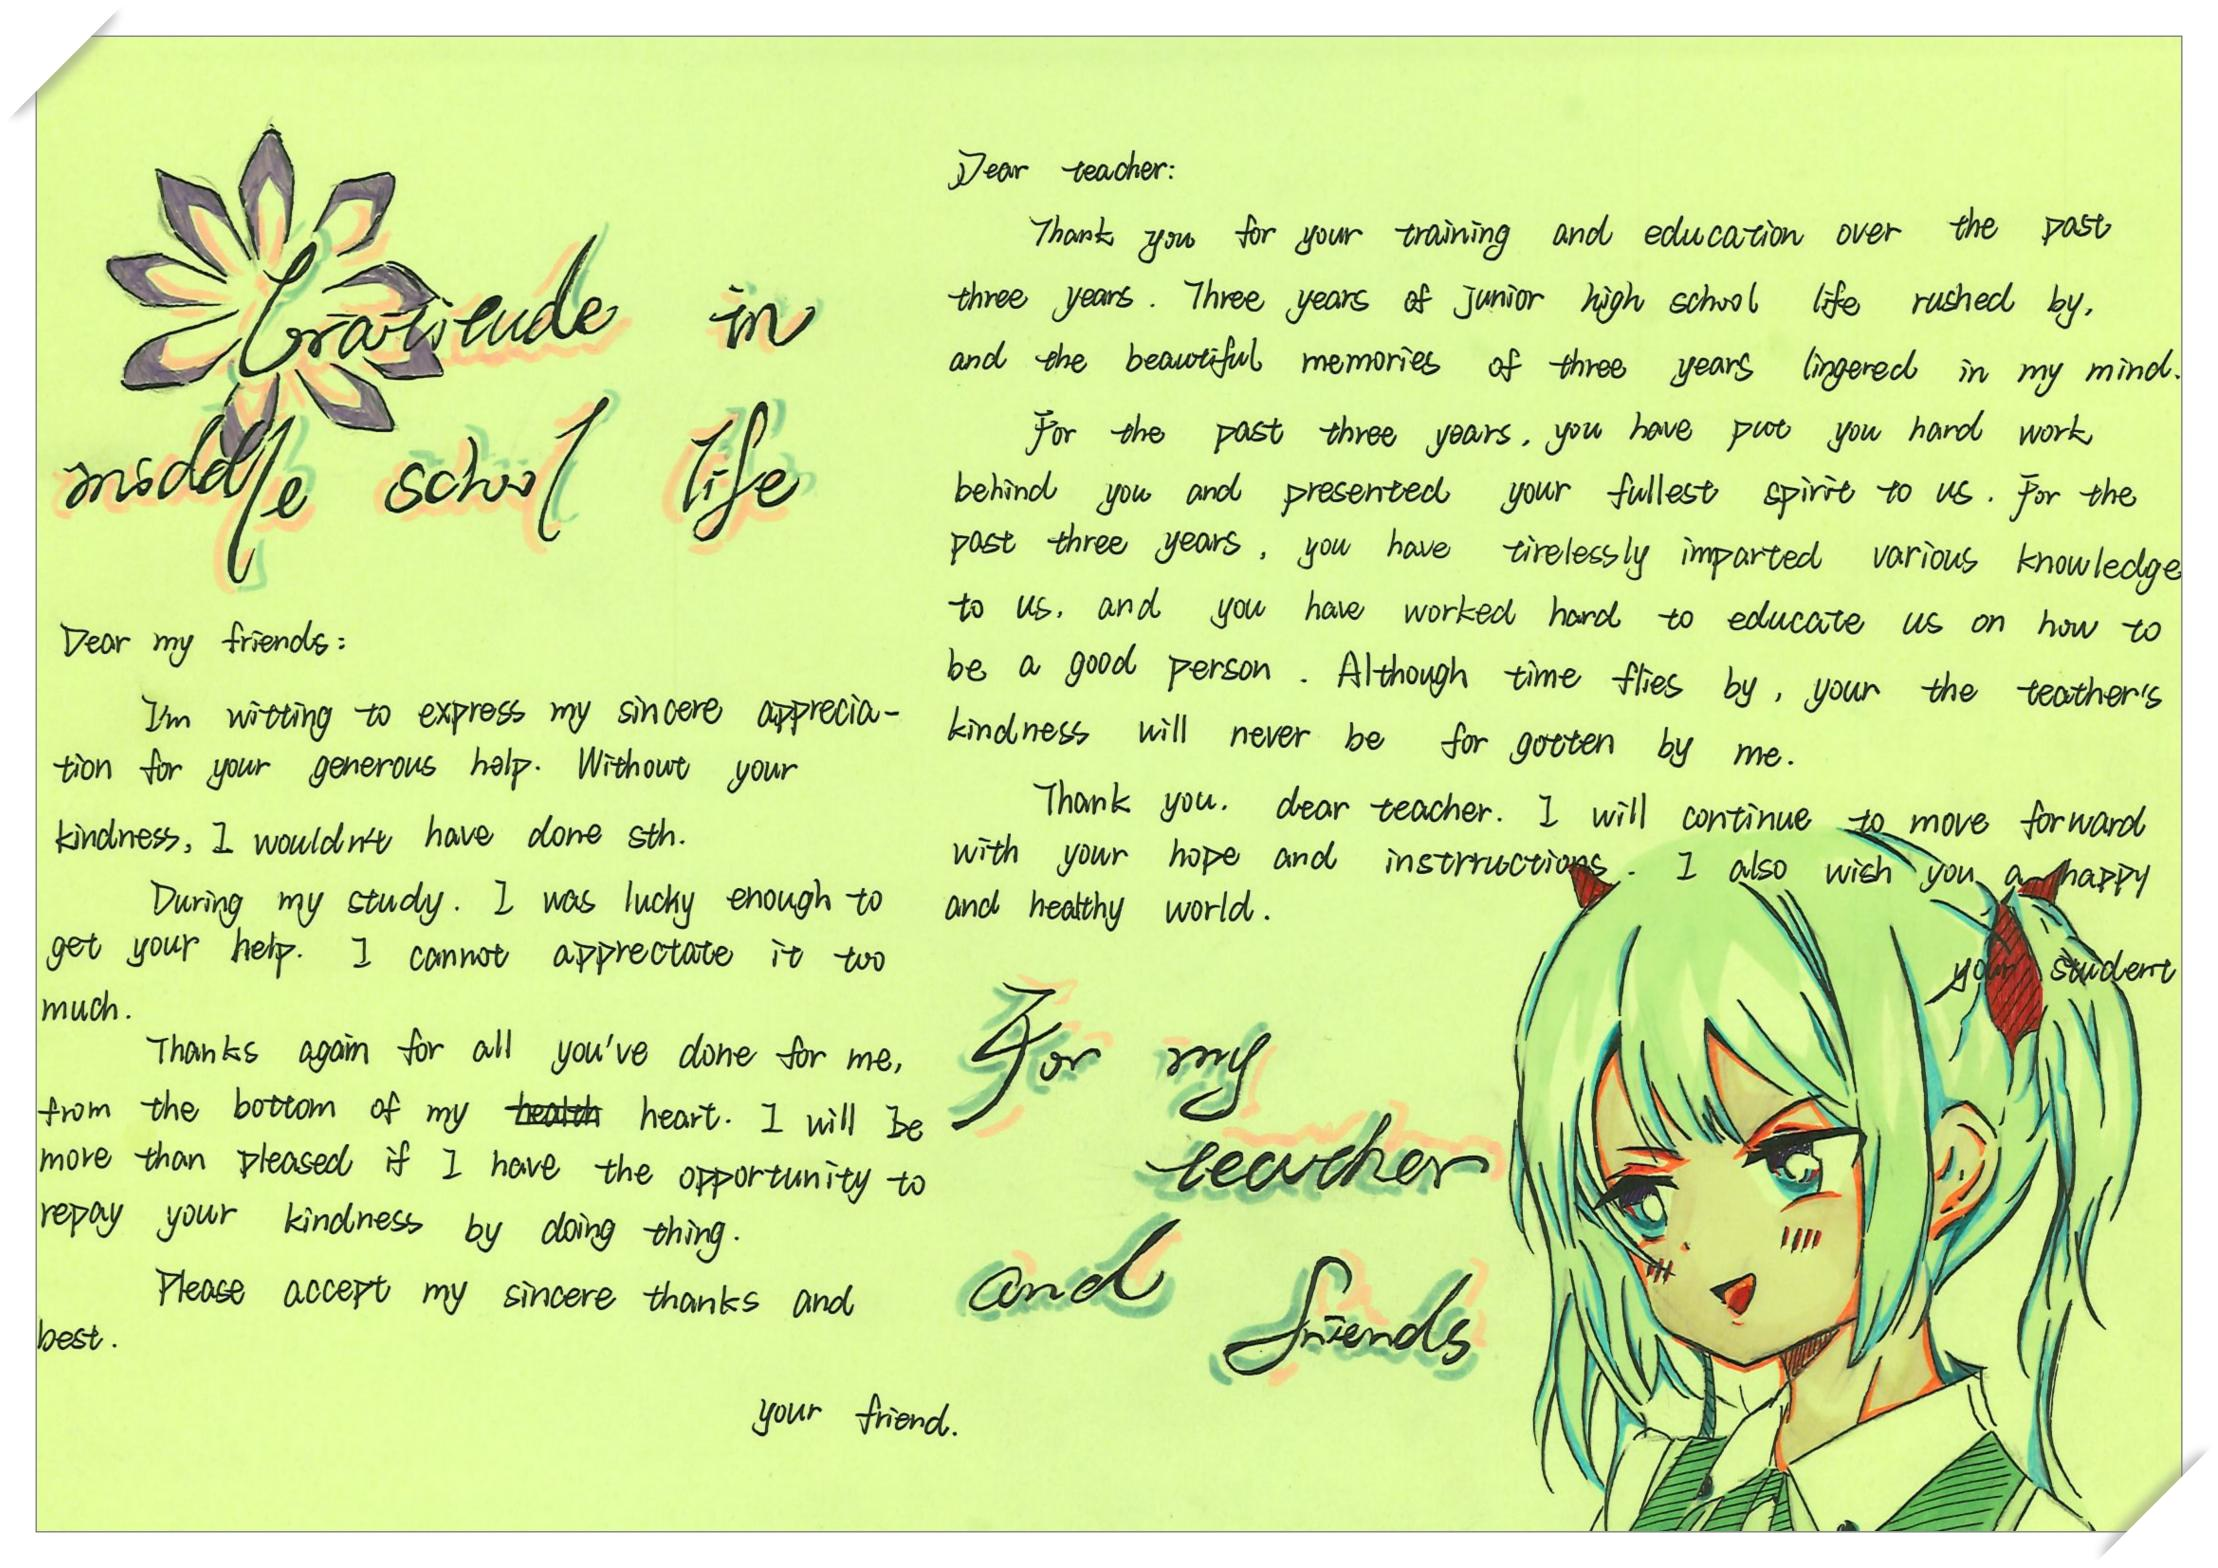 Gratitude in
middle school life
Dear my friends:
I'm witting to express my sincere apprecia-
tion for your generous help. Without your
kindness, I wouldn't have done sth.
During my study. I was lucky enough to
get your help. I cannot apprectate it too
much.
Thanks again for all you've done for me,
from the bottom of my health heart. I will be
more than pleased if I have the opportunity to
repay your kindness by doing thing.
Please accept my sincere thanks and
best.
your friend.
Dear teacher:
Thank you for your training and education over the past
three years. Three years of junior high school life rushed by,
and the beautiful memories of three years lingered in my mind.
For the past three years, you have put you hard work
behind you and presented your fullest spirit to us. For the
past three years, you have tirelessly imparted various knowledge
to us, and you have worked hard to educate us on how to
be a good person. Although time flies by, your the teather's
kindness will never be for gotten by me.
Thank you. dear teacher. I will continue to move forward
with your hope and instrructions. I also wish you a happy
and healthy world.
your student
For my
teacher
and
friends